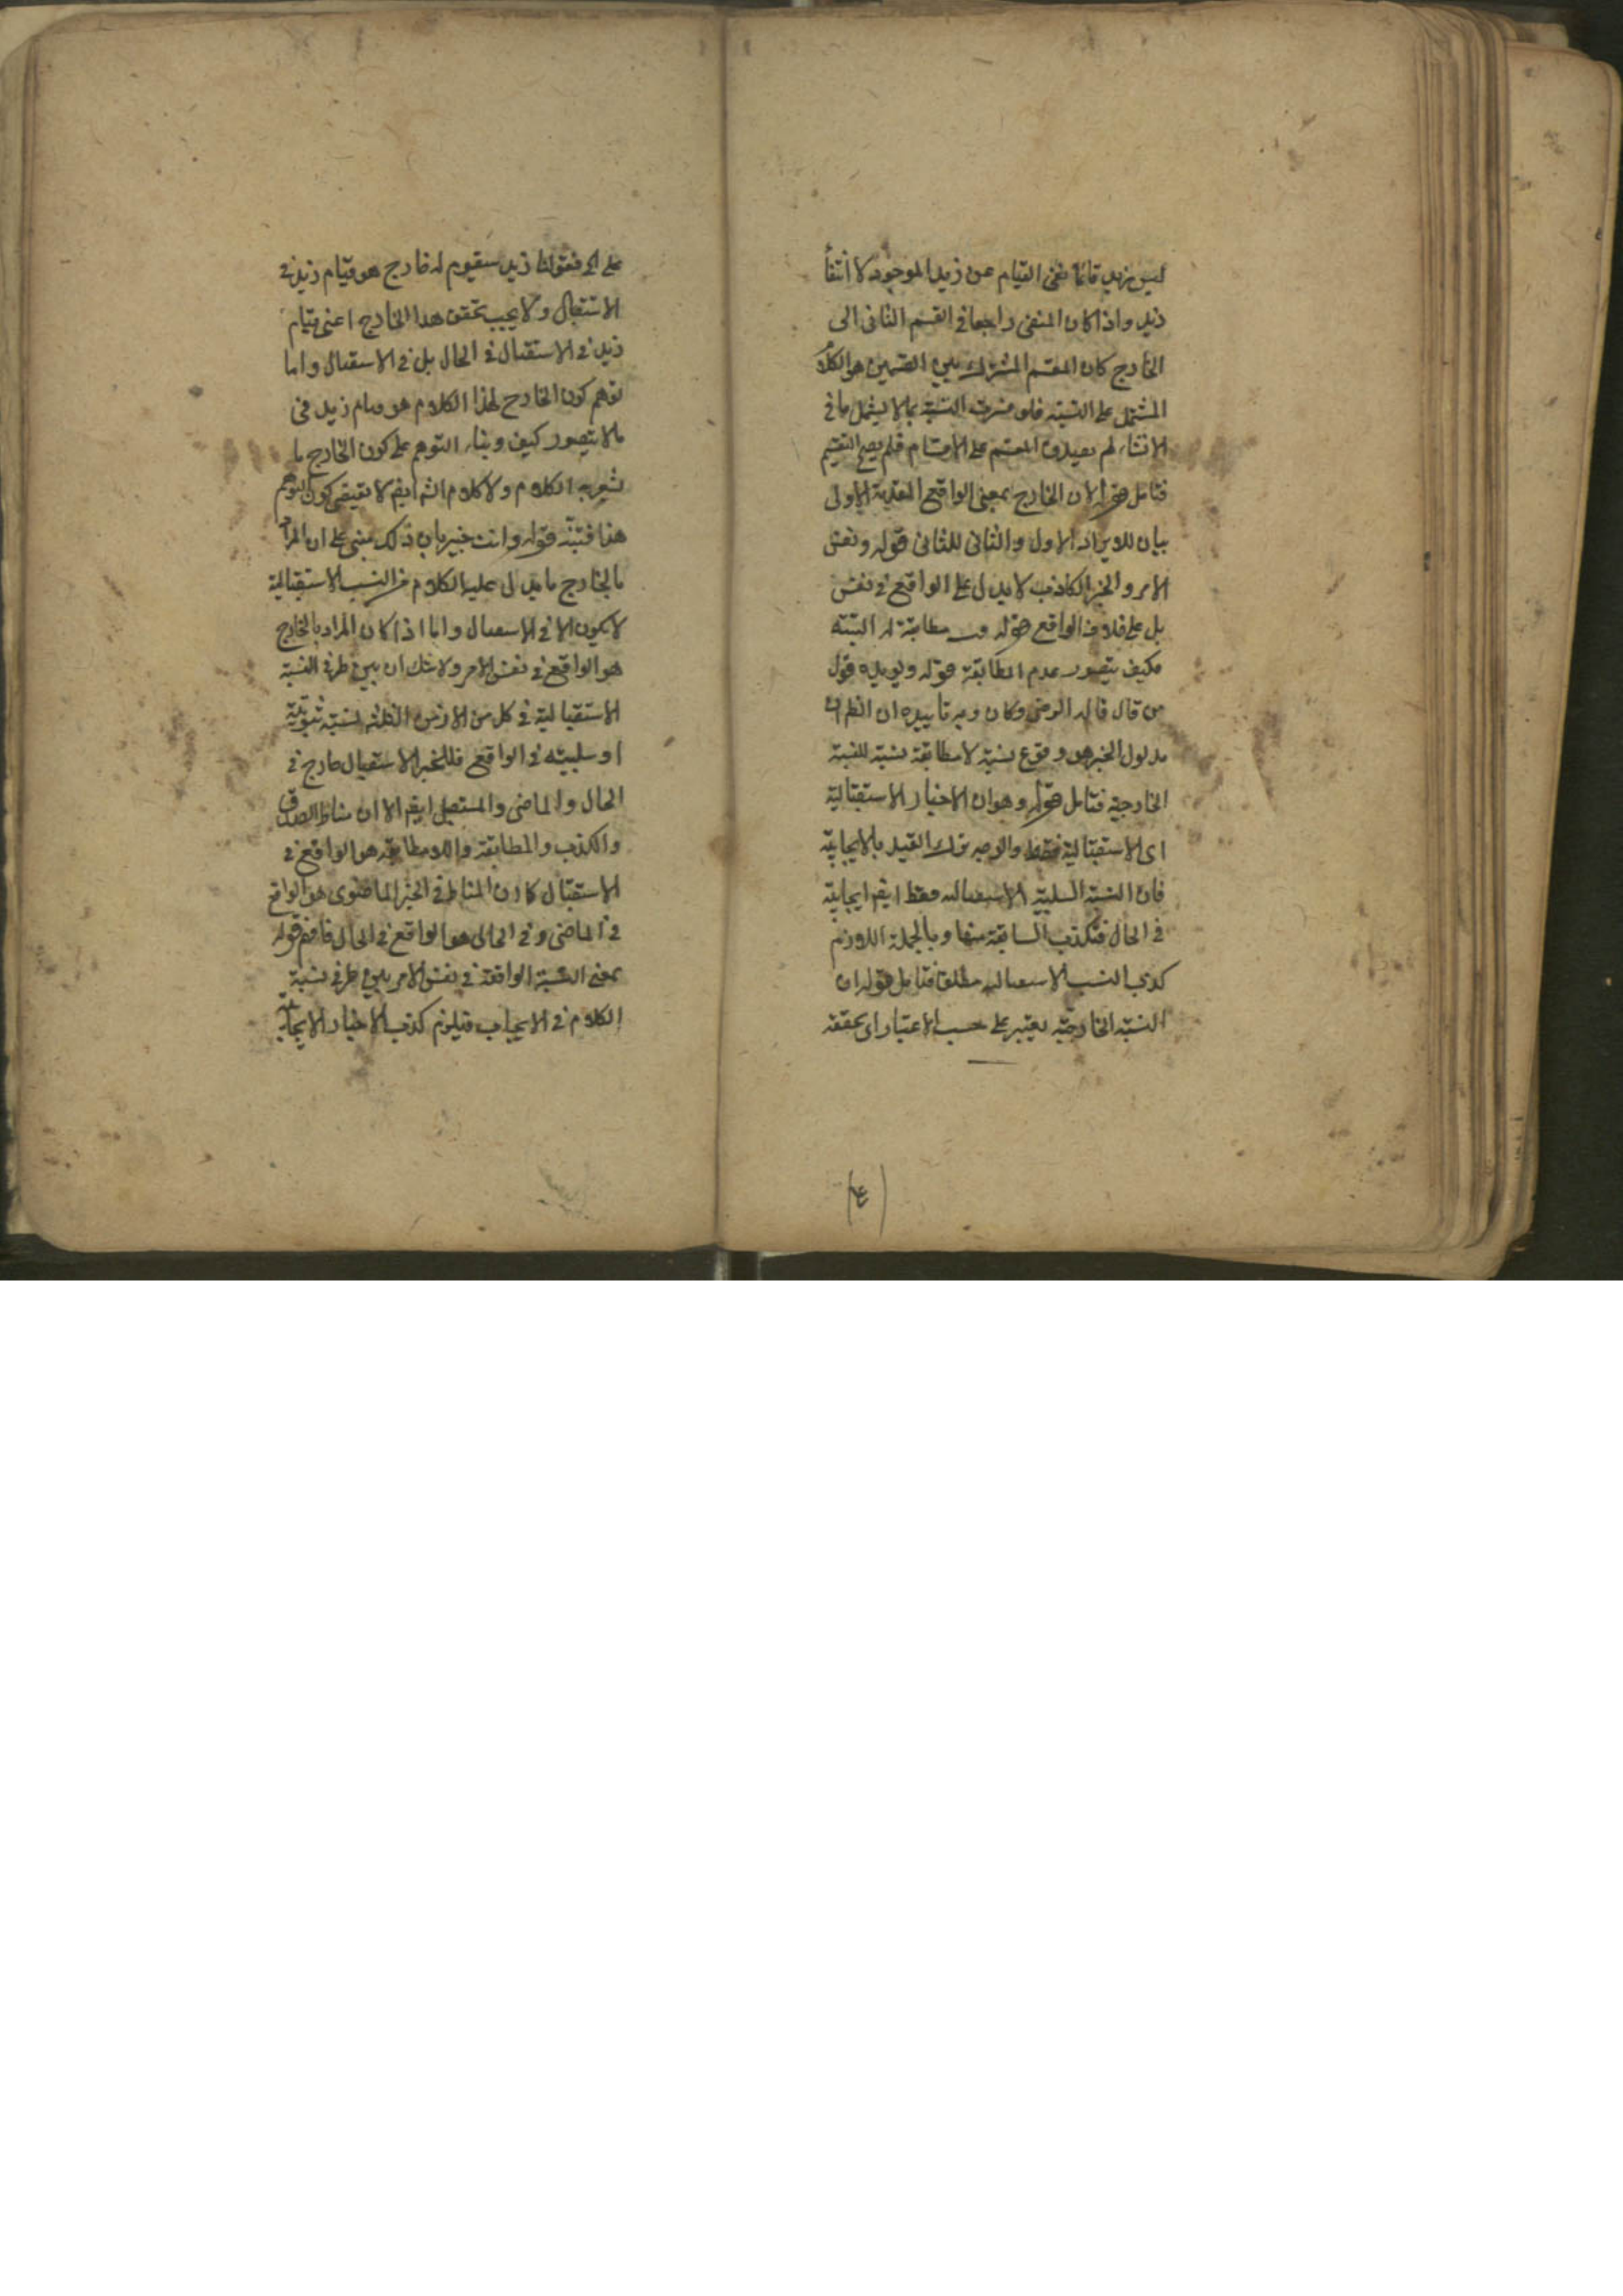 ليس زيد قائما نفى القيام عن زيد الموجود لا انتفأ
زيد واذا كان المنفى راجعا فى القسم الثانى الى
الخارج كان المقسم المشترك بين القسمين هو الكلام
المشتمل على النسبة فلو فسرت النسبة بما لا يشمل ما فى
الانشاء لم يصدق المقسم على الاقسام فلم يصح التقسيم
فتامل قوله لان الخارج بمعنى الواقع المقدمة الاولى
بيان للايراد الاول والثانى للثانى قوله ونفس
الامر والخبر الكاذب لا يدل على الواقع فى نفس
بل على خلاف الواقع قوله مطابقة له البتة
فكيف يتصور عدم المطابقة قوله ويويده قول
من قال قاله الرضى وكان وجه تاييده ان الظم ان
مدلول الخبر هو وقوع نسبة لا مطابقة نسبة للنسبة
الخارجية فتامل قوله وهو ان الاخبار الاستقبالية
اى الاستقبالية فقط والوجه ترك القيد بالايجابية
فان النسبة السلبية الاستقبالية فقط ايضا ايجابية
فى الحال فتكذب السابقة منها وبالجملة اللازم
كذب النسب الاستقبالية مطلقا فتامل قوله ان
النسبة الخارجية يعتبر على حسب الاعتبار اى تحققه
(٤)
على اى فقولنا زيد سيقوم له خارج هو قيام زيد فى
الاستقبال ولا يجب تحقق هذا الخارج اعنى قيام
زيد فى الاستقبال فى الحال بل فى الاستقبال واما
توهم كون الخارج لهذا الكلام هو قيام زيد فى
مالا يتصور كيف وبناء التوهم على كون الخارج ما
يشعر به الكلام ولا كلام ايضا لا يقتضى كون التوهم
هذا فتنبه قوله وانت خبير بان ذلك مبنى على ان المراد
بالخارج ما يدل عليه الكلام من النسب الاستقبالية
لا يكون الا فى الاستقبال واما اذا كان المراد بالخارج
هو الواقع فى نفس الامر ولا شك ان بين طرفى النسبة
الاستقبالية فى كل من الازمن الثلثة نسبة ثبوتية
او سلبية فى الواقع فللخبر الاستقبال خارج فى
الحال والماضى والمستقبل ايضا الا ان مناط الصدق
والكذب والمطابقة واللامطابقة هو الواقع فى
الاستقبال كما ان المناط فى الخبر الماضوى هو الواقع
فى الماضى وفى الحالى هو الواقع فى الحال فافهم قوله
بمعنى النسبة الواقعة فى نفس الامر بين طرفى نسبة
الكلام فى الايجاب فيلزم كذب الاخبار الايجابية